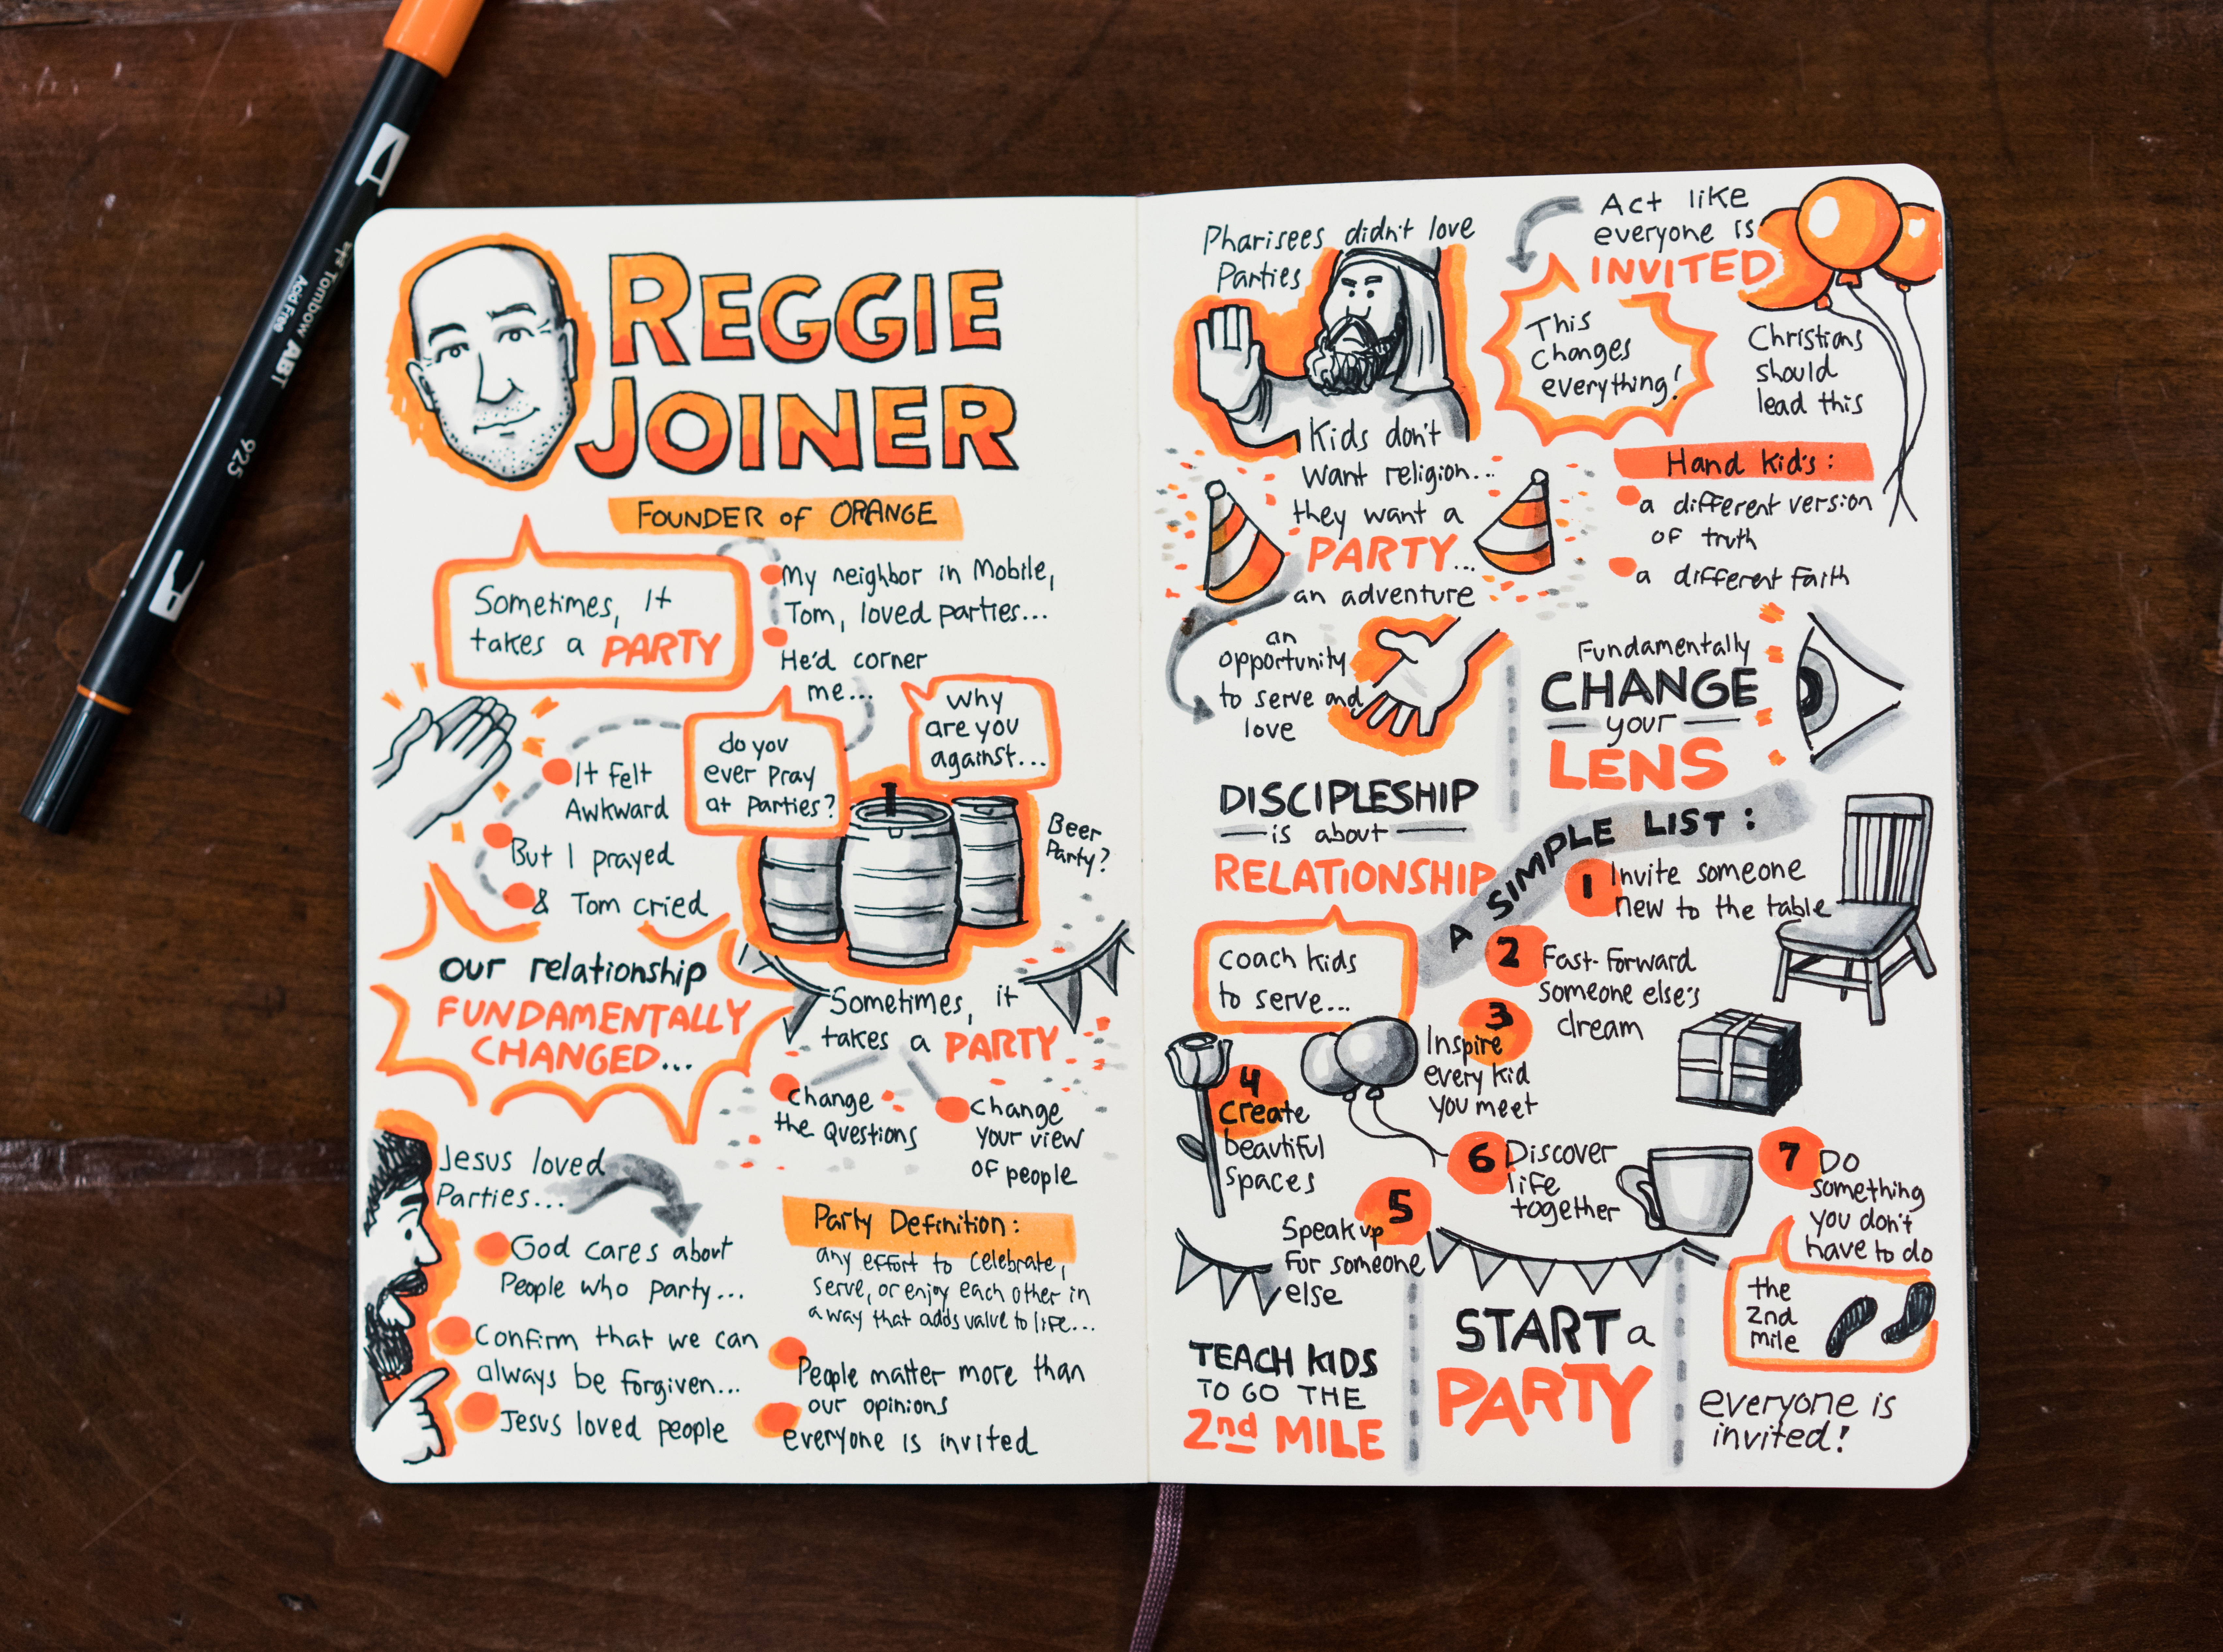 REGGIE
JOINER
FOUNDER of ORANGE
Sometimes, it
takes a PARTY
My neighbor in Mobile,
Tom, loved parties...
He'd corner
me...
do you
ever pray
at parties?
why
are you
against...
Beer
Party?
It felt
Awkward
But I prayed
& Tom cried
our relationship
FUNDAMENTALLY
CHANGED...
Sometimes, it
takes a PARTY
change
the questions
change
your view
of people
Jesus loved
Parties...
God cares about
People who party...
Confirm that we can
always be forgiven...
Jesus loved people
Party Definition:
any effort to celebrate,
serve, or enjoy each other in
a way that adds value to life...
People matter more than
our opinions
everyone is invited
Pharisees didn't love
Parties
Kids don't
want religion...
they want a
PARTY...
an adventure
an
opportunity
to serve and
love
DISCIPLESHIP
is about
RELATIONSHIP
coach kids
to serve...
Act like
everyone is
INVITED
This
changes
everything!
Christians
should
lead this
Hand kid's:
a different version
of truth
a different faith
Fundamentally
CHANGE
your
LENS
A SIMPLE LIST:
1 Invite someone
new to the table
2 Fast-forward
someone else's
dream
3
Inspire
every kid
you meet
4
Create
beautiful
spaces
5
Speak up
for someone
else
6 Discover
life
together
7 Do
something
you don't
have to do
the
2nd
mile
TEACH KIDS
TO GO THE
2nd MILE
START a
PARTY
everyone is
invited!
Tombow ABT
Acid Free
925